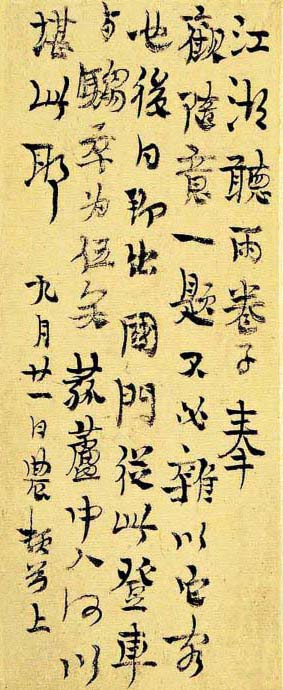 江湖聽雨卷子奉
觀隨意一題不必雜以它客
也後日即出國門從此登車
与騶卒為伍矣菰蘆中人何以
堪此耶
九月廿一日農頓首上